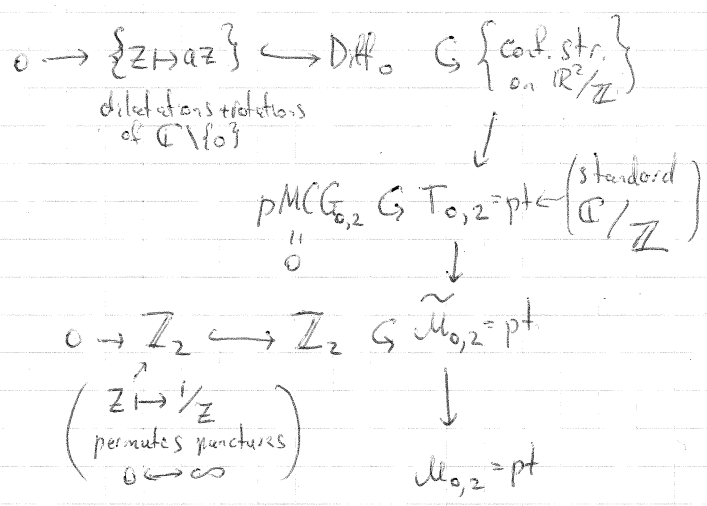 0 → {z ↦ az} ↪ Diff₀ ↻ {conf. str. on ℝ²/ℤ}
dilatations + rotations
of ℂ\{0}
↓
pMCG₀,₂ ↻ T₀,₂ = pt ← (standard ℂ/ℤ)
"
0
↓
0 → ℤ₂ ↪ ℤ₂ ↻ M̃₀,₂ = pt
↗
(z ↦ 1/z
permutes punctures
0 ↔ ∞)
↓
M₀,₂ = pt